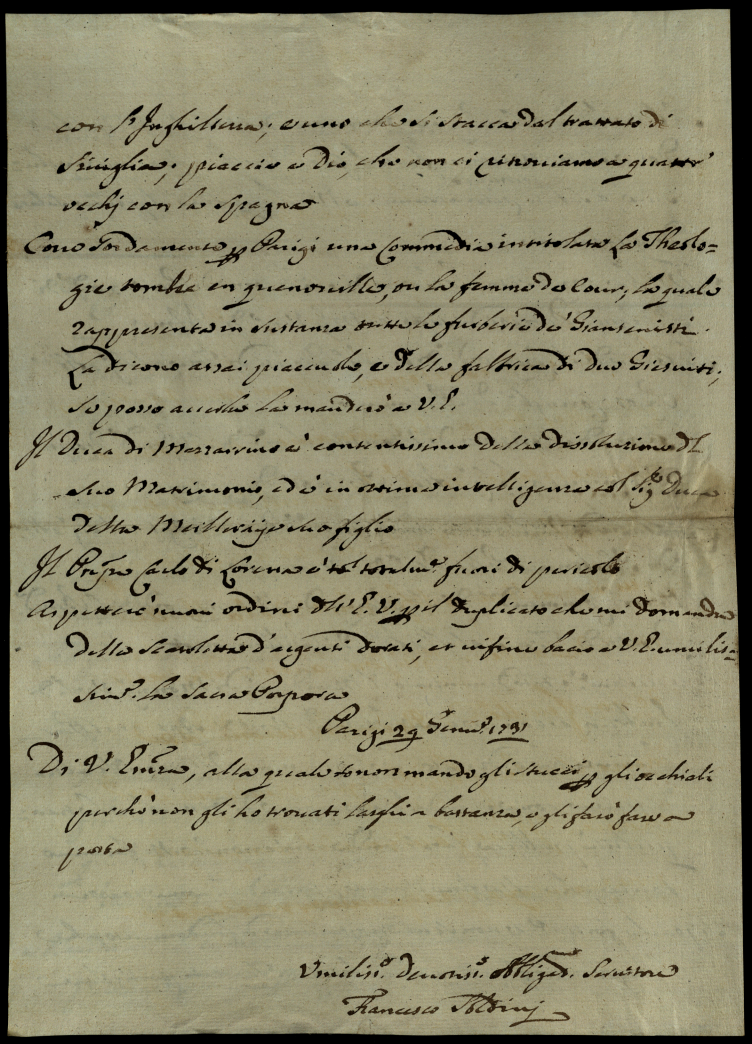 con l'Inghilterra; e uno che si stacca dal trattato di
Siviglia; piaccia a Dio, che non ci ritroviamo a quattr'
occhj con la Spagna
Corre sordamente p Parigi una Commedia intitolata La Theolo=
gie tombée en quenouille, ou la femme do cour, la quale
rappresenta in sustanza tutte le furberie de' Giansenisti.
La dicono assai piacevole, e della fabbrica di due Giesuiti;
se posso averla la manderò a V. E.
Il Duca di Mazzarrino è contentissimo della dissoluzione dl
suo Matrimonio, ed è in ottima intelligenza col Sig.r Duca
della Meilleraije suo figlio
Il Prñpe Carlo di Lorena è totalm.e fuori di pericolo
Aspetterò nuovi ordini dll' E. V. p il duplicato che mi domanda
della Scatoletta d'argenti dorati, et infine bacio a V. E. umilis=
sim.e la Sacra Porpora
Parigi 29 Genn.o 1731
Di V. Emza, alla quale non mando gli stucci p gli occhiali
perchè non gli ho trovati larghi a bastanza, e gli farò fare a
posta
Umilis.o devotis.o Obligat. Servitore
Francesco